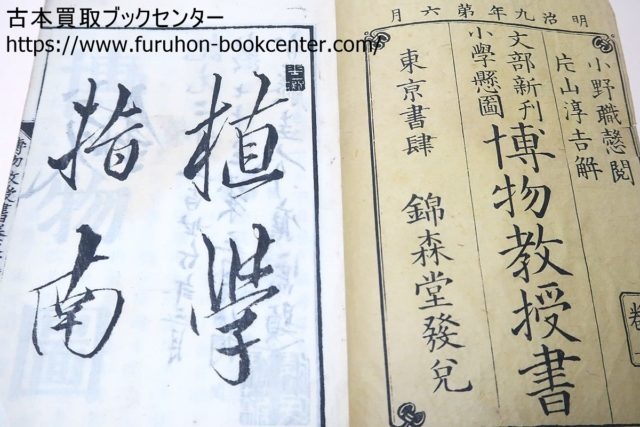 古本買取ブックセンター
https://www.furuhon-bookcenter.com/
明治九年第六月
小野職愨閲
片山淳吉解
文部新刊
小學懸圖
博物教授書
東亰書肆
錦森堂發兌
植學
指南